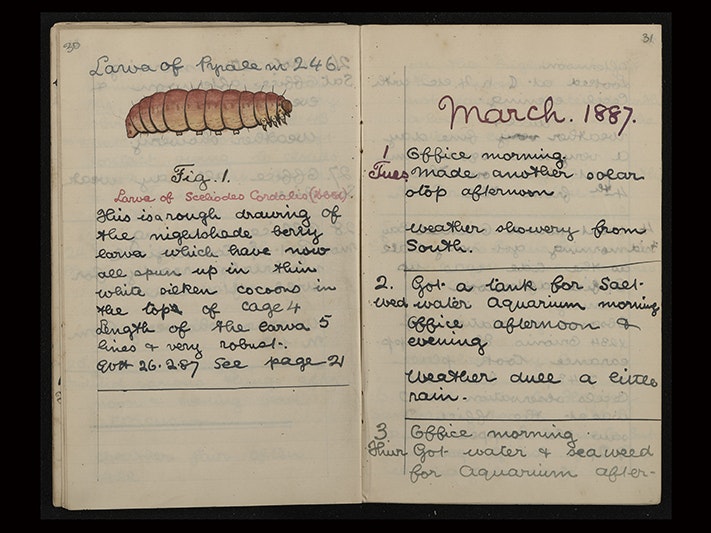 30
Larva of Pyrale no 246.
Fig. 1.
Larva of Sceliodes Cordalis (Dble).
This is a rough drawing of
the nightshade berry
larva which have now
all spun up in thin
white silken cocoons in
the top of cage 4
Length of the larva 5
lines & very robust.
GVH 26.2.87 See page 21
31
March. 1887.
1 Office morning
Tues Made another solar
stop afternoon
Weather showery from
South.
2. Got a tank for Salt-
Wed water Aquarium morning
Office afternoon &
evening
Weather dull a little
rain.
3 Office morning.
Thur Got water & seaweed
for Aquarium after-